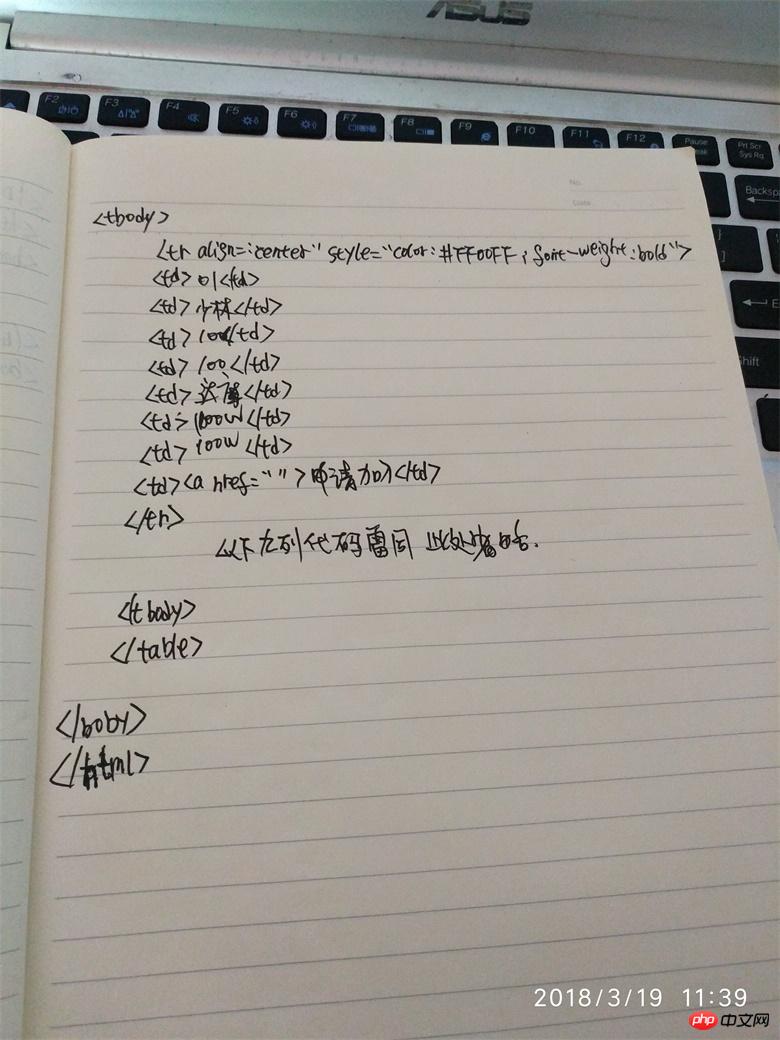 ASUS
F2 F3 F4 F5 F6 F7 F8 F9 F10 F11 F12 Pause Prt Scr
Sys Rq
Backsp
E
hift
No.
Date
<tbody>
<tr align=:center" style="color:#FF00FF; font-weight:bold">
<td>01<td>
<td>少林</td>
<td>100</td>
<td>100</td>
<td>达摩</td>
<td>100W</td>
<td>100W</td>
<td><a href="">申请加入</td>
</tr>
以下左列代码雷同 此处省略.
</tbody>
</table>
</boby>
</html>
2018/3/19 11:39
php 中文网